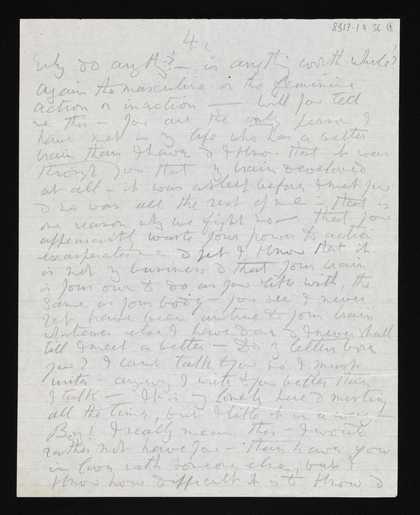 8317.1.4 36
4.
Why do anything? — is anything worth while?
Again the masculine or the feminine
action or inaction — Will you tell
me this — You are the only person I
have met in my life who has a better
brain than I have & I know that it was
through you that my brain developed
at all — it was asleep before I met you
& so was all the rest of me — that is
one reason why we fight so — that you
apparently waste your power to action
exasperates me & yet I know that it
is not my business & that your brain
is your own to do as you like with, the
same as your body — you see I never
yet have been untrue to your brain
whatever else I have done & I never shall
till I meet a better — Do my letters bore
you? I can't talk to you so I must
write — anyway I write to you better than
I talk — It is lonely here & misting
all the time, but I like it in a way —
Boy! I really mean this — I would
rather not have you — than have you
in love with someone else, but I
know how difficult it is to know &